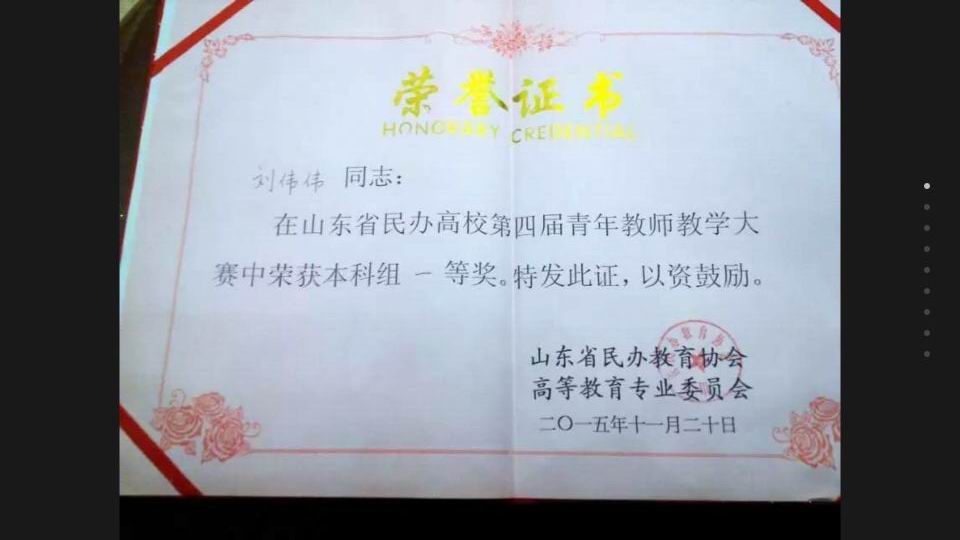 荣誉证书
HONORARY CREDENTIAL
刘伟伟 同志：
在山东省民办高校第四届青年教师教学大
赛中荣获本科组 一 等奖。特发此证，以资鼓励。
山东省民办教育协会
高等教育专业委员会
二〇一五年十一月二十日